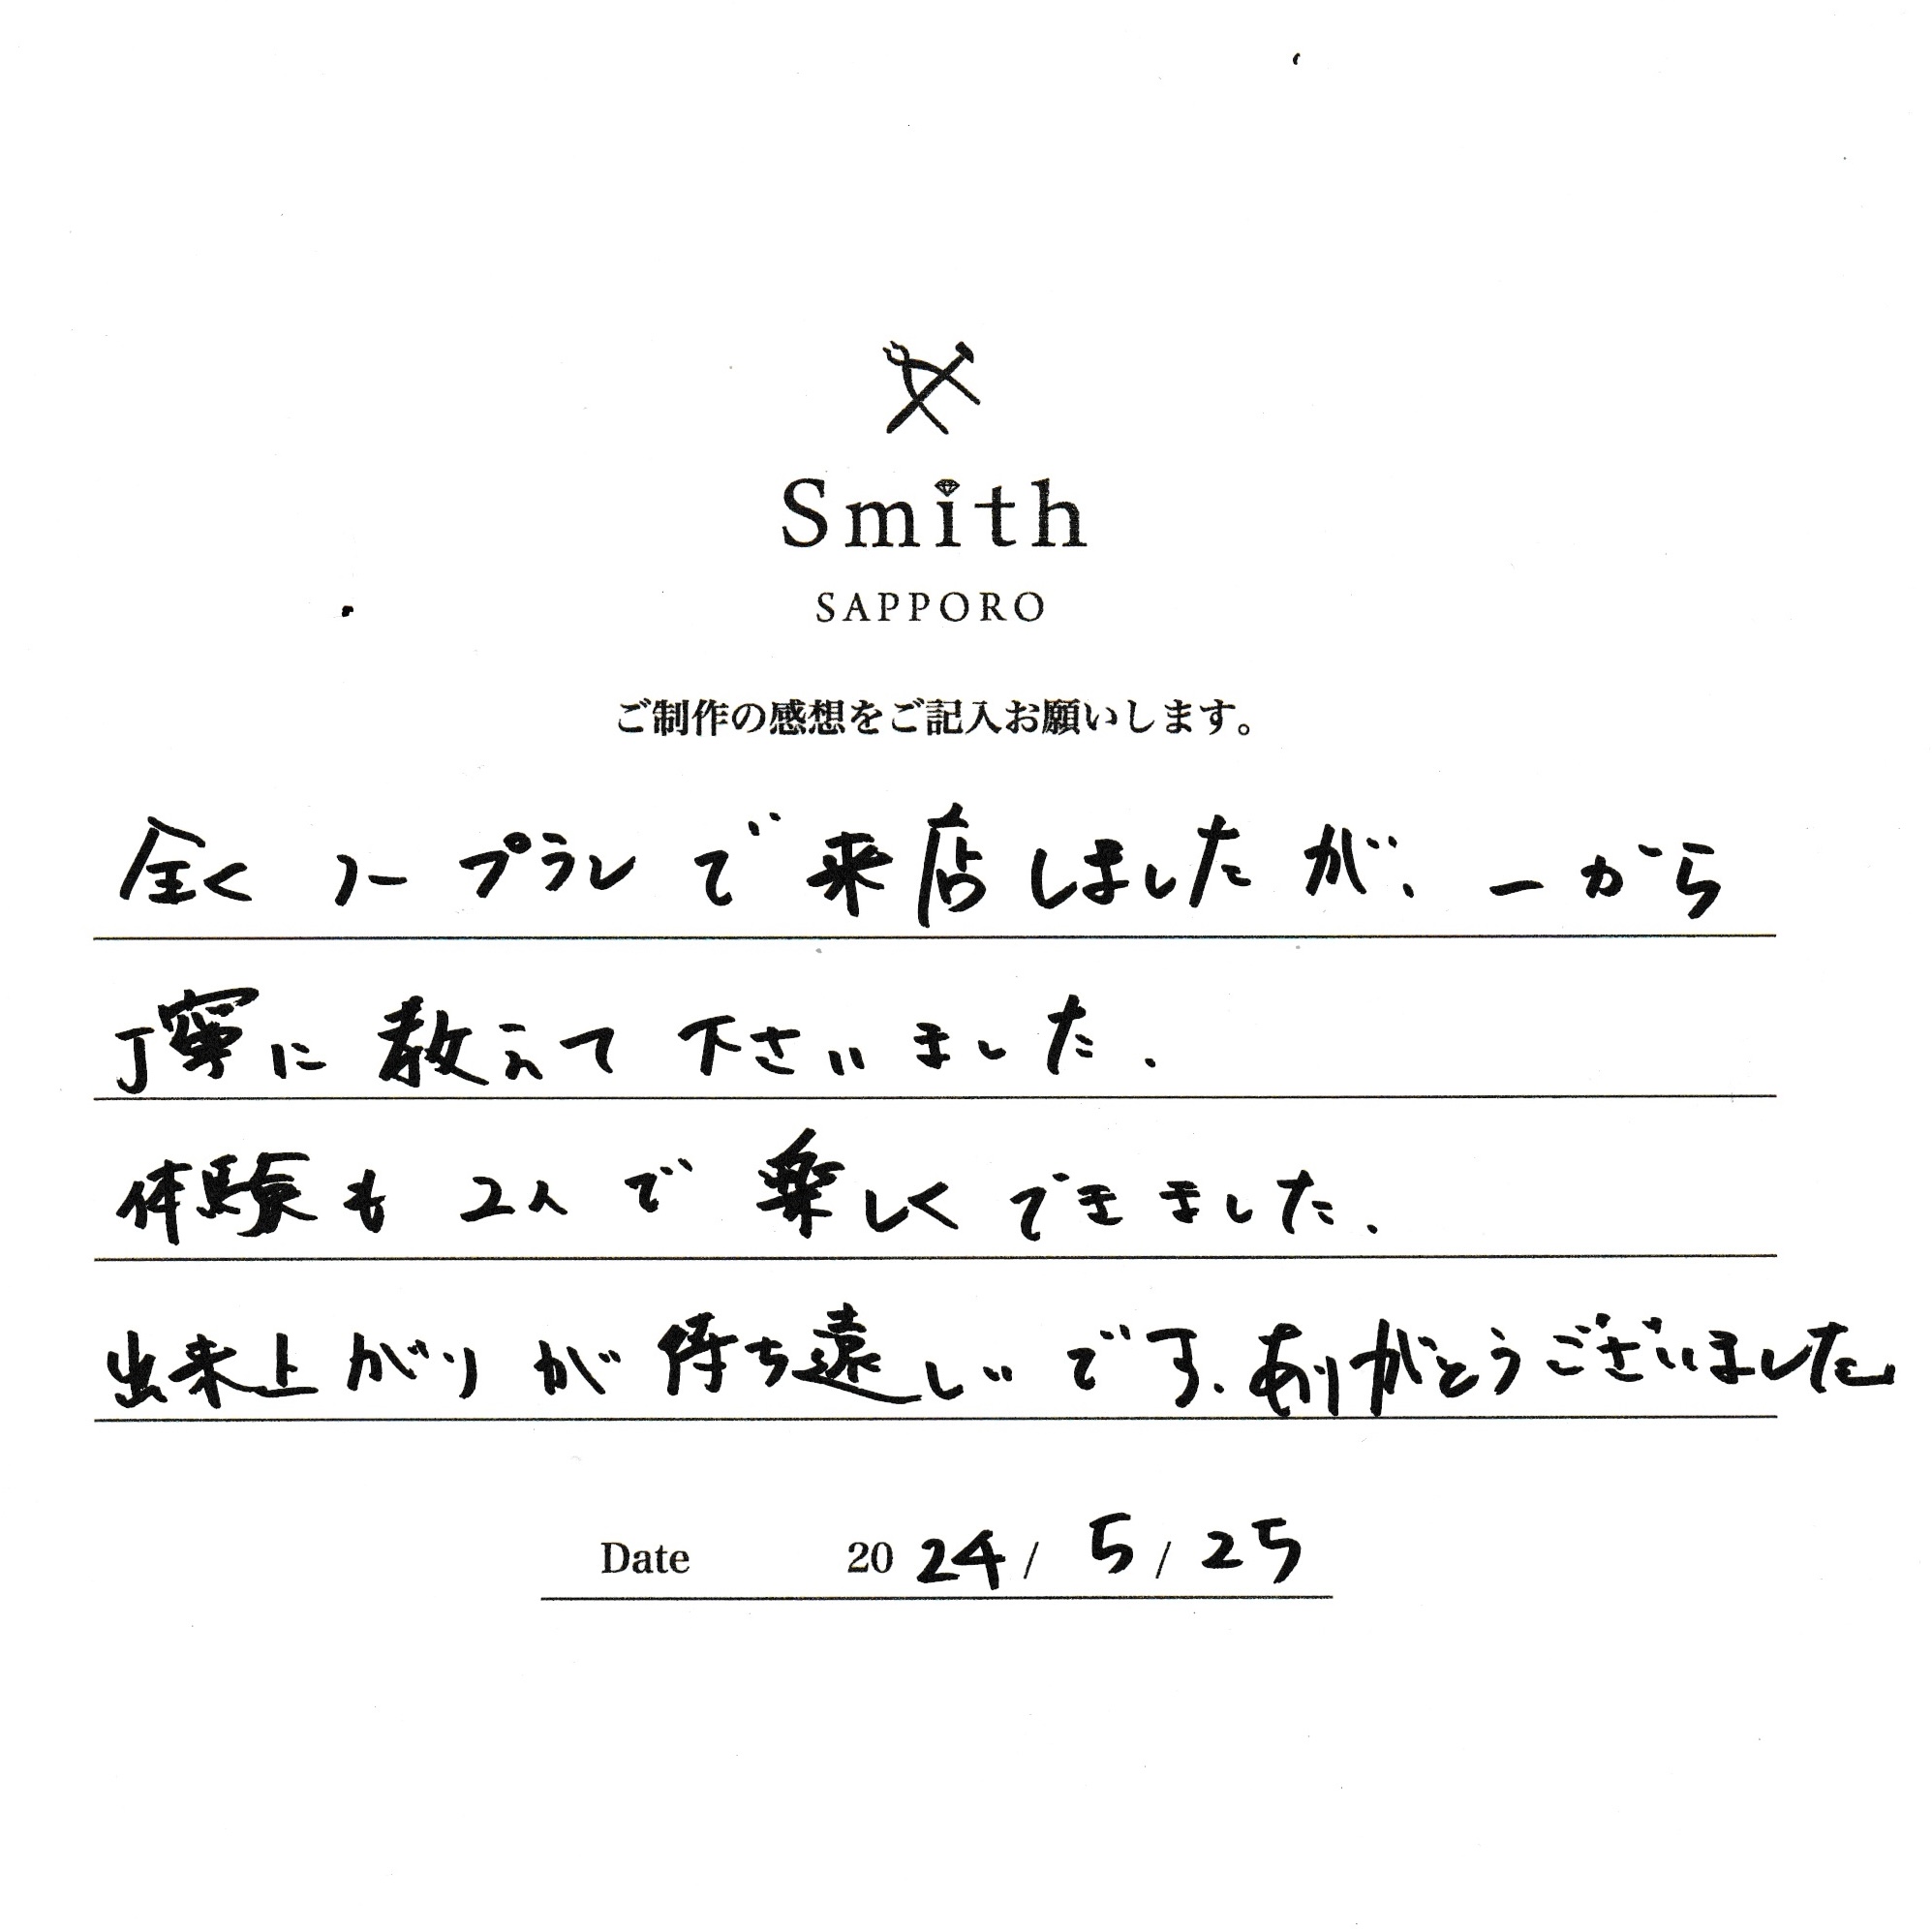 Smith
SAPPORO
ご制作の感想をご記入お願いします。
全くノープランで来店しましたが、一から
丁寧に教えて下さいました.
体験も2人で楽しくできました.
出来上がりが待ち遠しいです.ありがとうございました
Date 2024/5/25